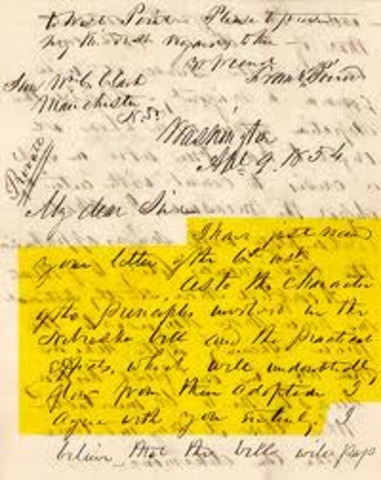 to West Point. Please to present
my kindest regards to Mrs
Yr friend
Frank Pierce
Hon Wm C. Clark
Manchester
N. H.
Private
Washington
Apl 9. 1854
My dear Sir
I have just recd
your letter of the 6th inst
As to the character
of the principles involved in the
Nebraska bill and the practical
effects, which will undoubtedly
flow from their adoption I
agree with you entirely. I
believe that the bill will pass